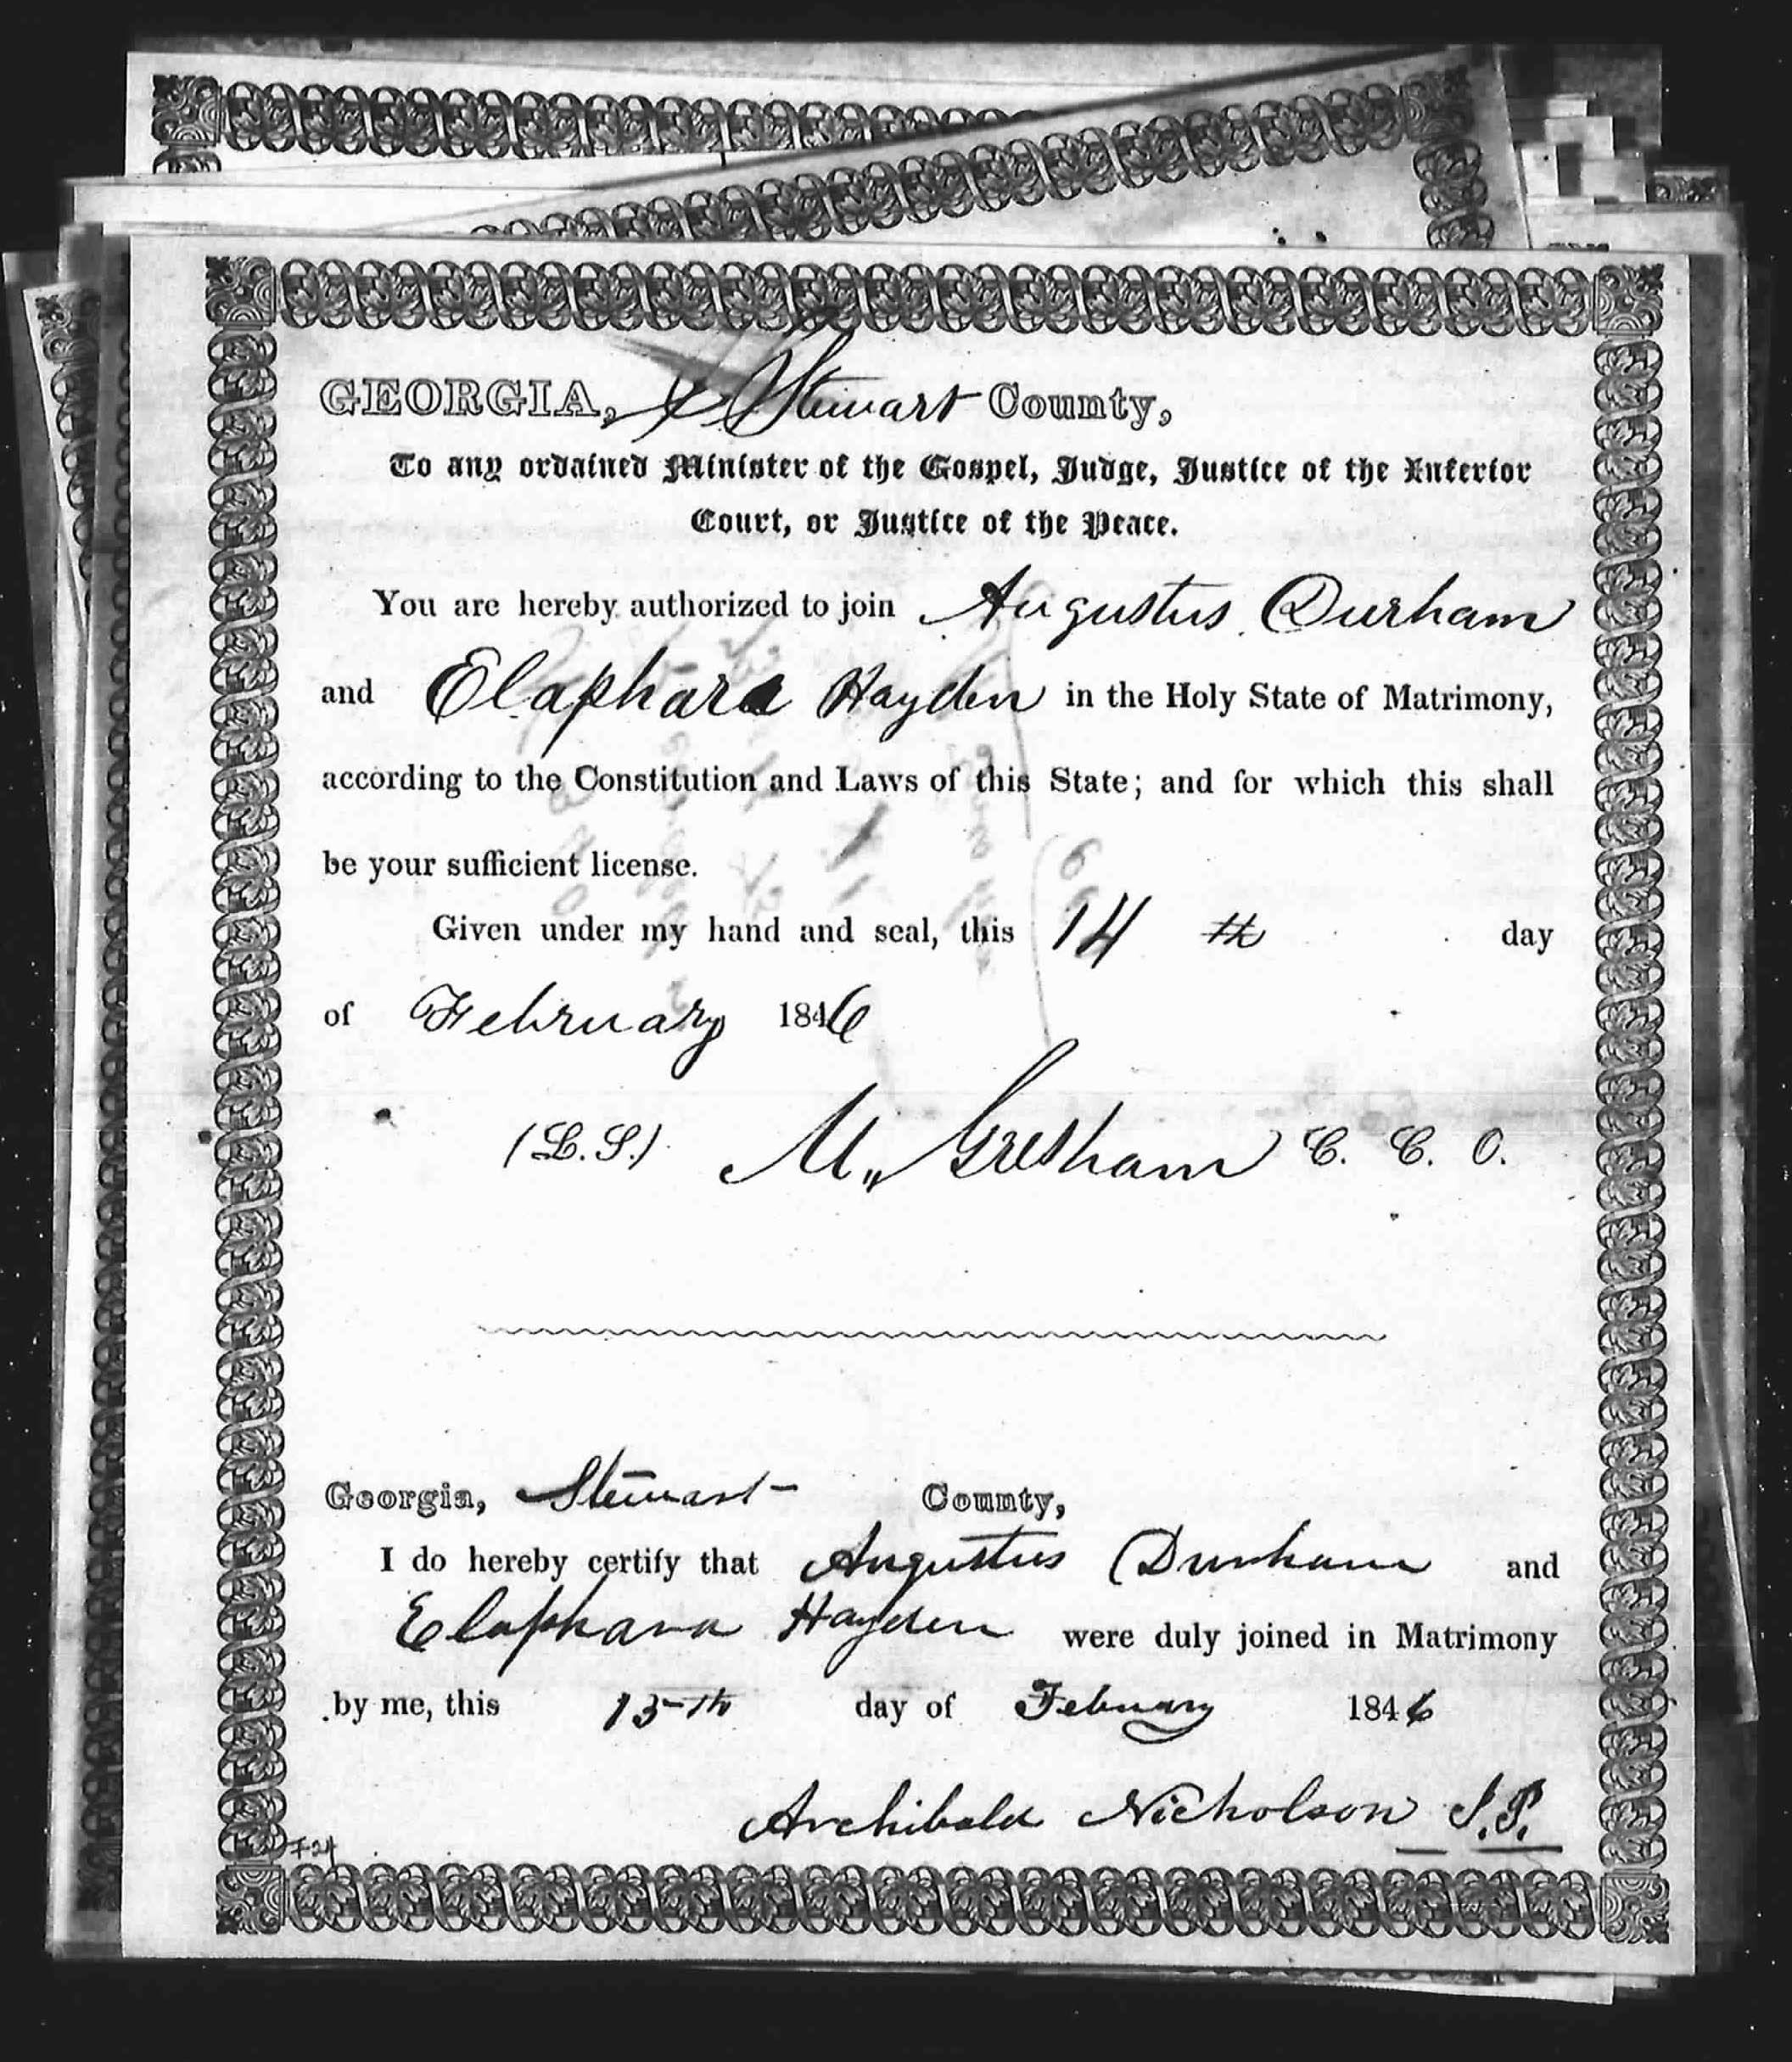 GEORGIA, Stewart County,
To any ordained Minister of the Gospel, Judge, Justice of the Inferior
Court, or Justice of the Peace.
You are hereby authorized to join Augustus Durham
and Elaphara Hayden in the Holy State of Matrimony,
according to the Constitution and Laws of this State; and for which this shall
be your sufficient license.
Given under my hand and seal, this 14 th day
of February 1846
(L.S.) M. Gresham C. C. O.
Georgia, Stewart County,
I do hereby certify that Augustus Durham and
Elaphara Hayden were duly joined in Matrimony
by me, this 15th day of February 1846
Archibald Nicholson J.P.